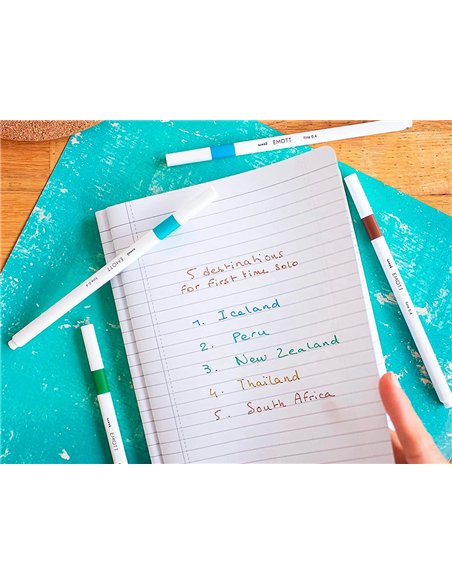 uni EMOTT fine 0.4
5 destinations
for first time solo
1. Iceland
2. Peru
3. New Zealand
4. Thailand
5. South Africa
EMOTT fine 0.4
EMOTT
uni EMOTT